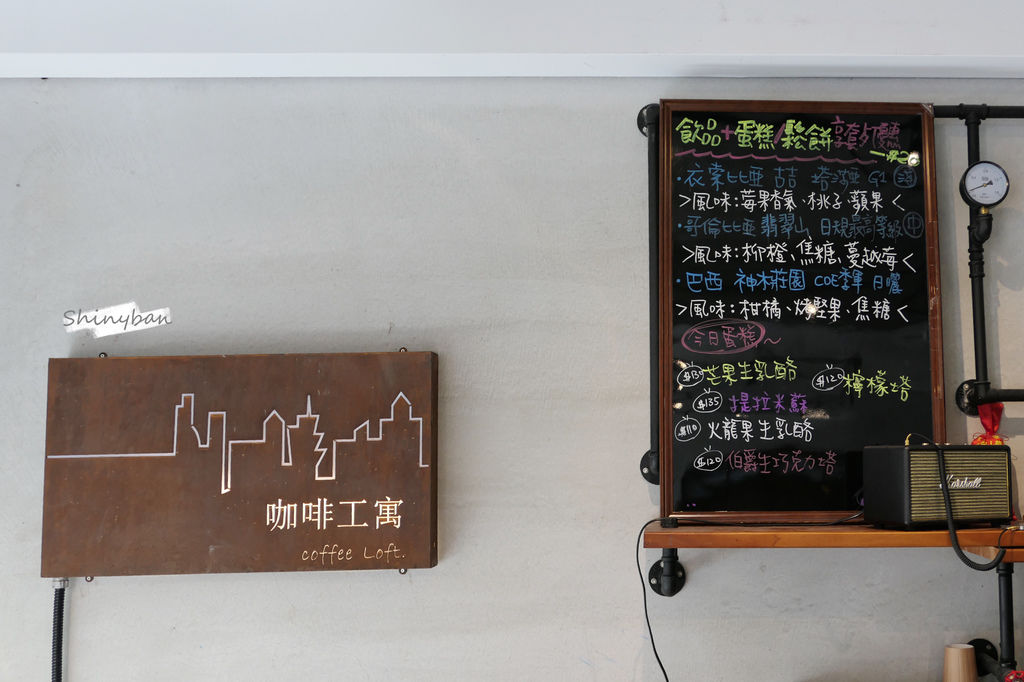 Shinyban
咖啡工寓
coffee Loft.
飲品+蛋糕/鬆餅享套餐優惠
·衣索比亞 喆 G1
>風味:莓果香氣、桃子、蘋果<
·哥倫比亞 翡翠山 日規最高等級 中
>風味:柳橙、焦糖、蔓越莓<
·巴西 神木莊園 COE季軍 日曬
>風味:柑橘、烤堅果、焦糖<
今日蛋糕~
$135 芒果生乳酪
$120 檸檬塔
$135 提拉米蘇
$110 火龍果生乳酪
$120 伯爵生巧克力塔
Marshall